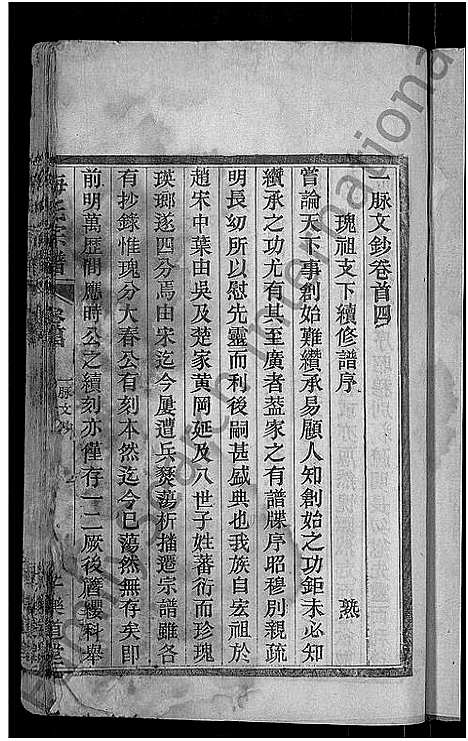 一脉文鈔卷首四
瑰祖支下續修譜序
熟
嘗論天下事創始難纘承易顧人知創始之功鉅未必知
纘承之功尤有其至廣者葢家之有譜牒序昭穆別親疏
明長幼所以慰先靈而利後嗣甚盛典也我族自宏祖於
趙宋中葉由吳及楚家黃岡延及八世子姓蕃衍而珍瑰
瑛瑯遂四分焉由宋迄今屢遭兵燹蕩析播遷宗譜雖各
有抄錄惟瑰分大春公有刻本然迄今已蕩然無存矣即
前明萬歷間應時公之續刻亦僅存一二厥後躋纓科舉
宗譜
一脉文鈔